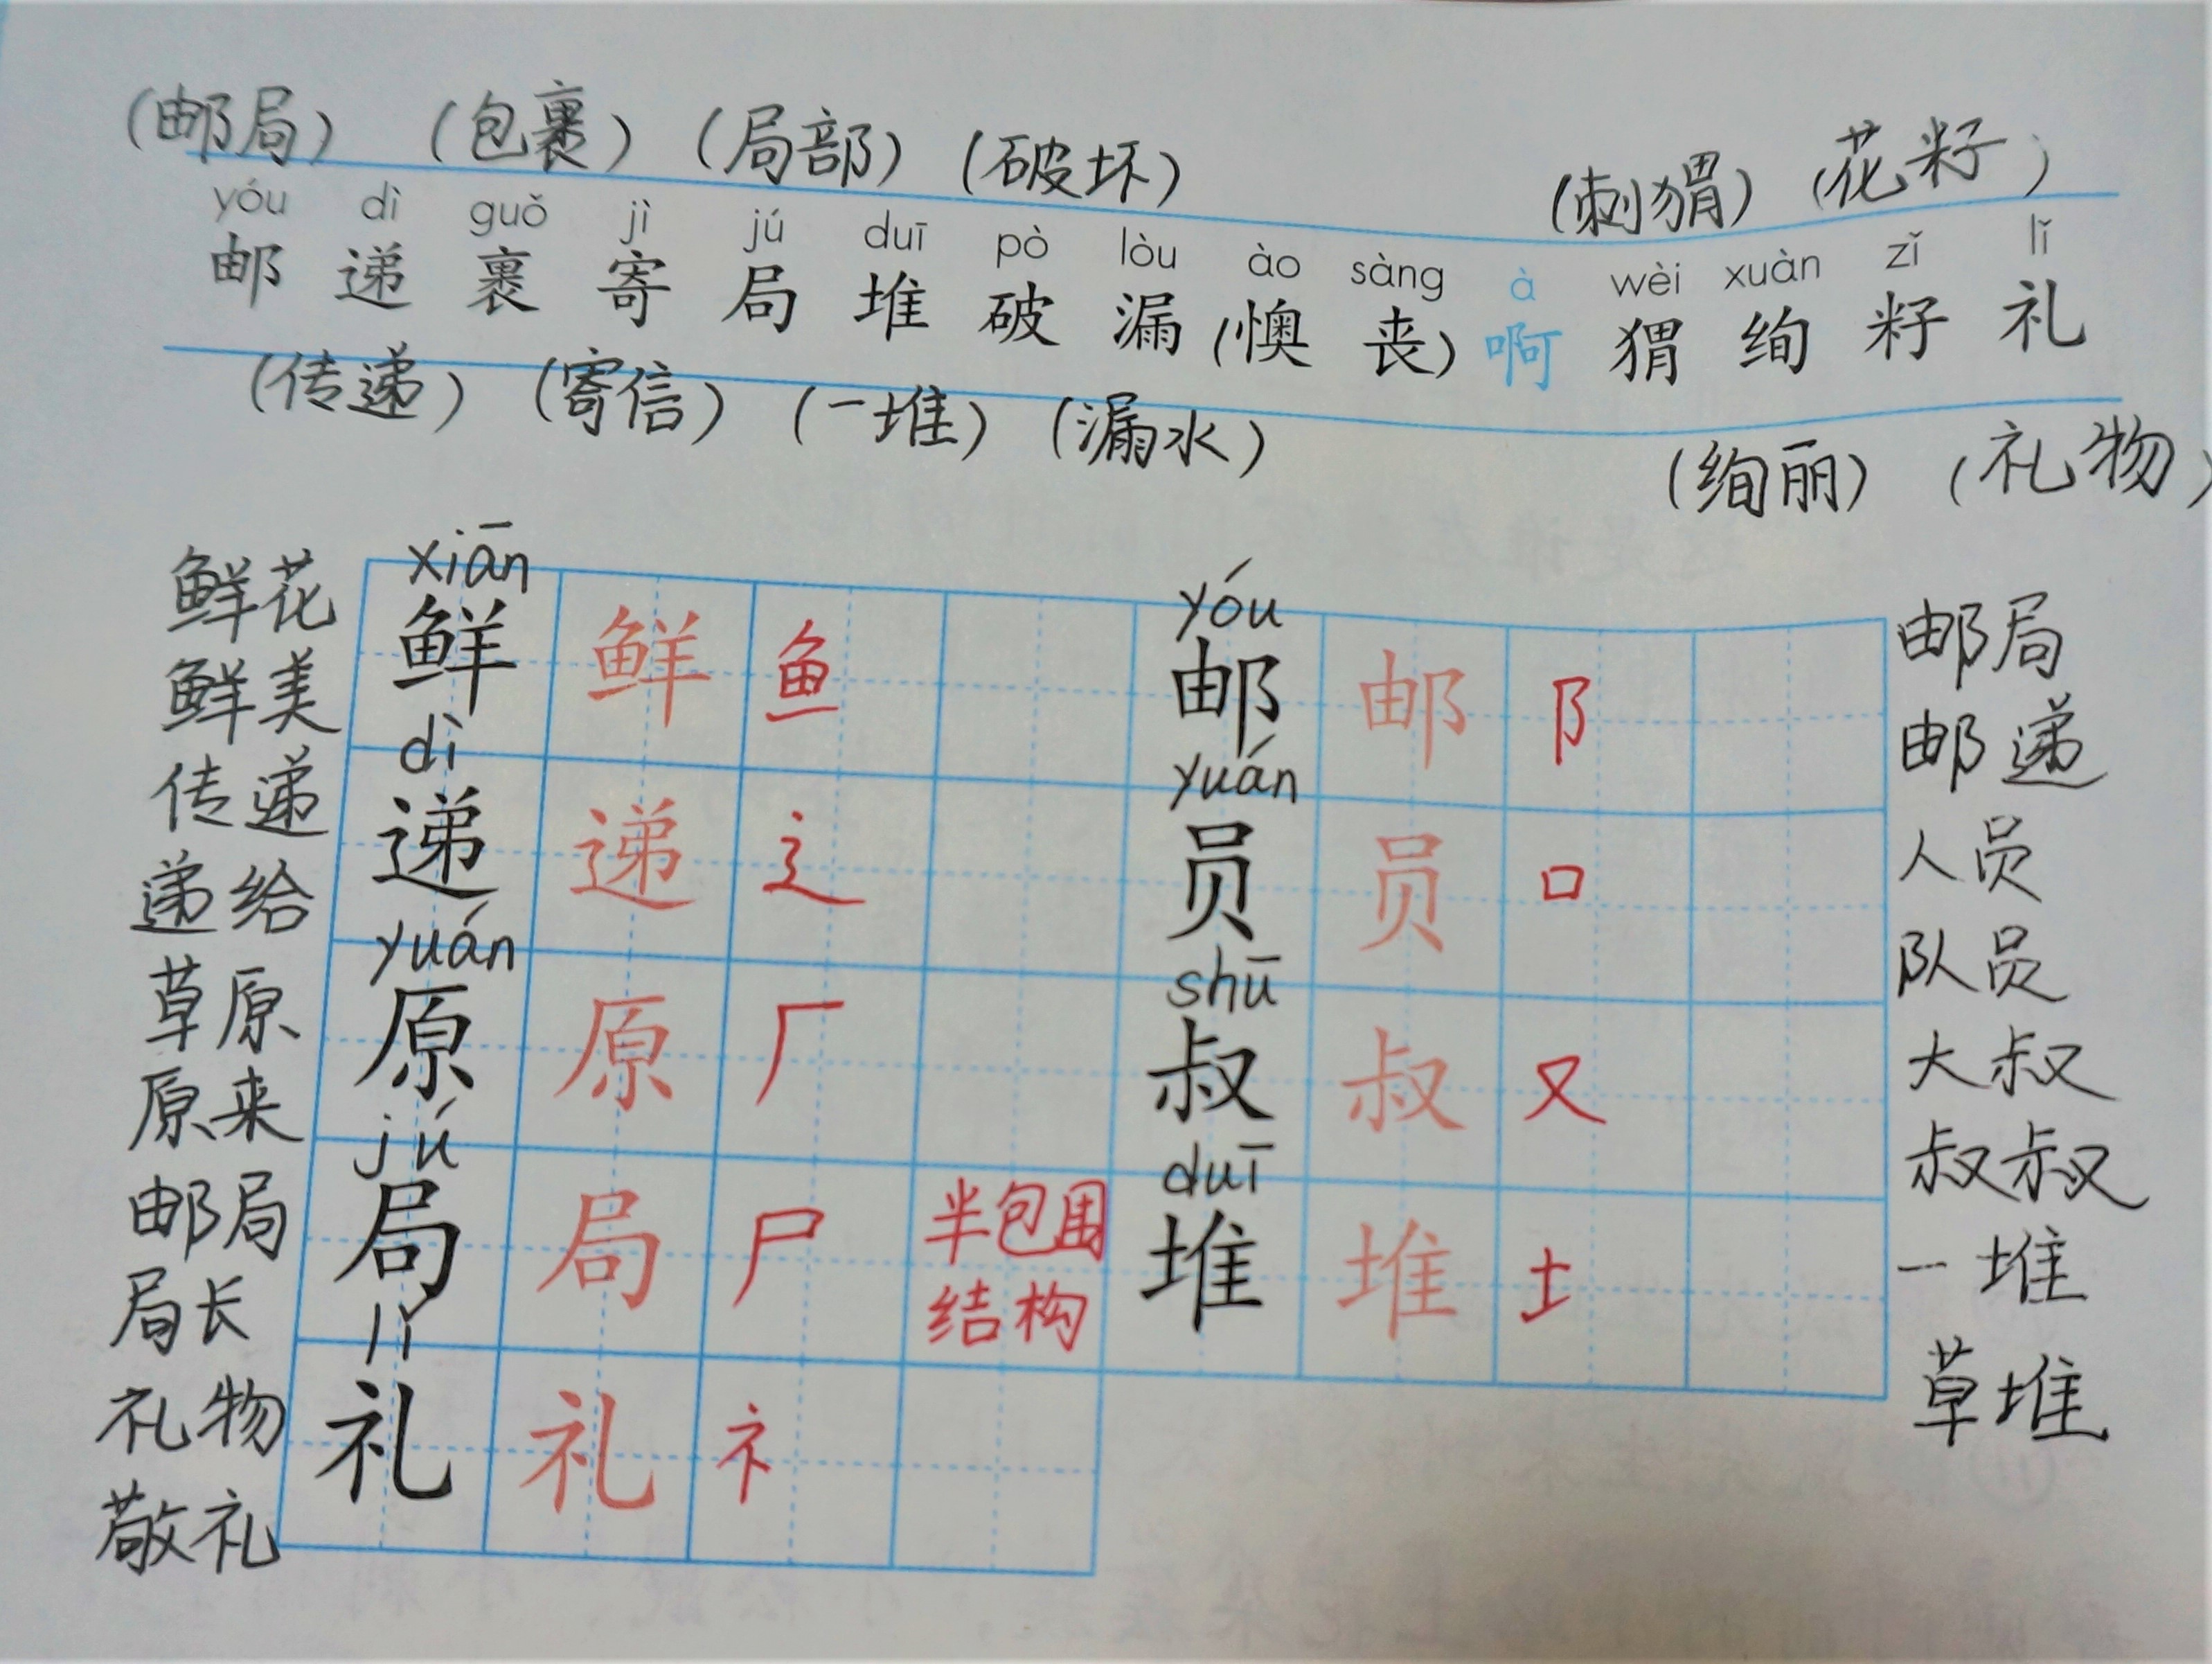 (邮局) (包裹) (局部) (破坏) (刺猬) (花籽)
yóu dì guǒ jì jú duī pò lòu ào sàng à wèi xuàn zǐ lǐ
邮 递 裹 寄 局 堆 破 漏 (懊 丧) 啊 猬 绚 籽 礼
(传递) (寄信) (一堆) (漏水) (绚丽) (礼物)
xiān yóu
鲜花 鲜 鲜 鱼 邮 邮 阝 邮局
鲜美 邮递
dì yuán
传递 递 递 辶 员 员 口 人员
递给 队员
yuán shū
草原 原 原 厂 叔 叔 又 大叔
原来 叔叔
jú duī
邮局 局 局 尸 半包围 堆 堆 土 一堆
局长 结构 草堆
lǐ
礼物 礼 礼 礻
敬礼